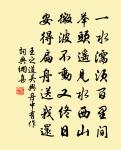 一水濡須百里間
舉頭遙見水西山
微波不動又終日
安得扁舟送我還
王之道吳興舟中有作
詞典網集